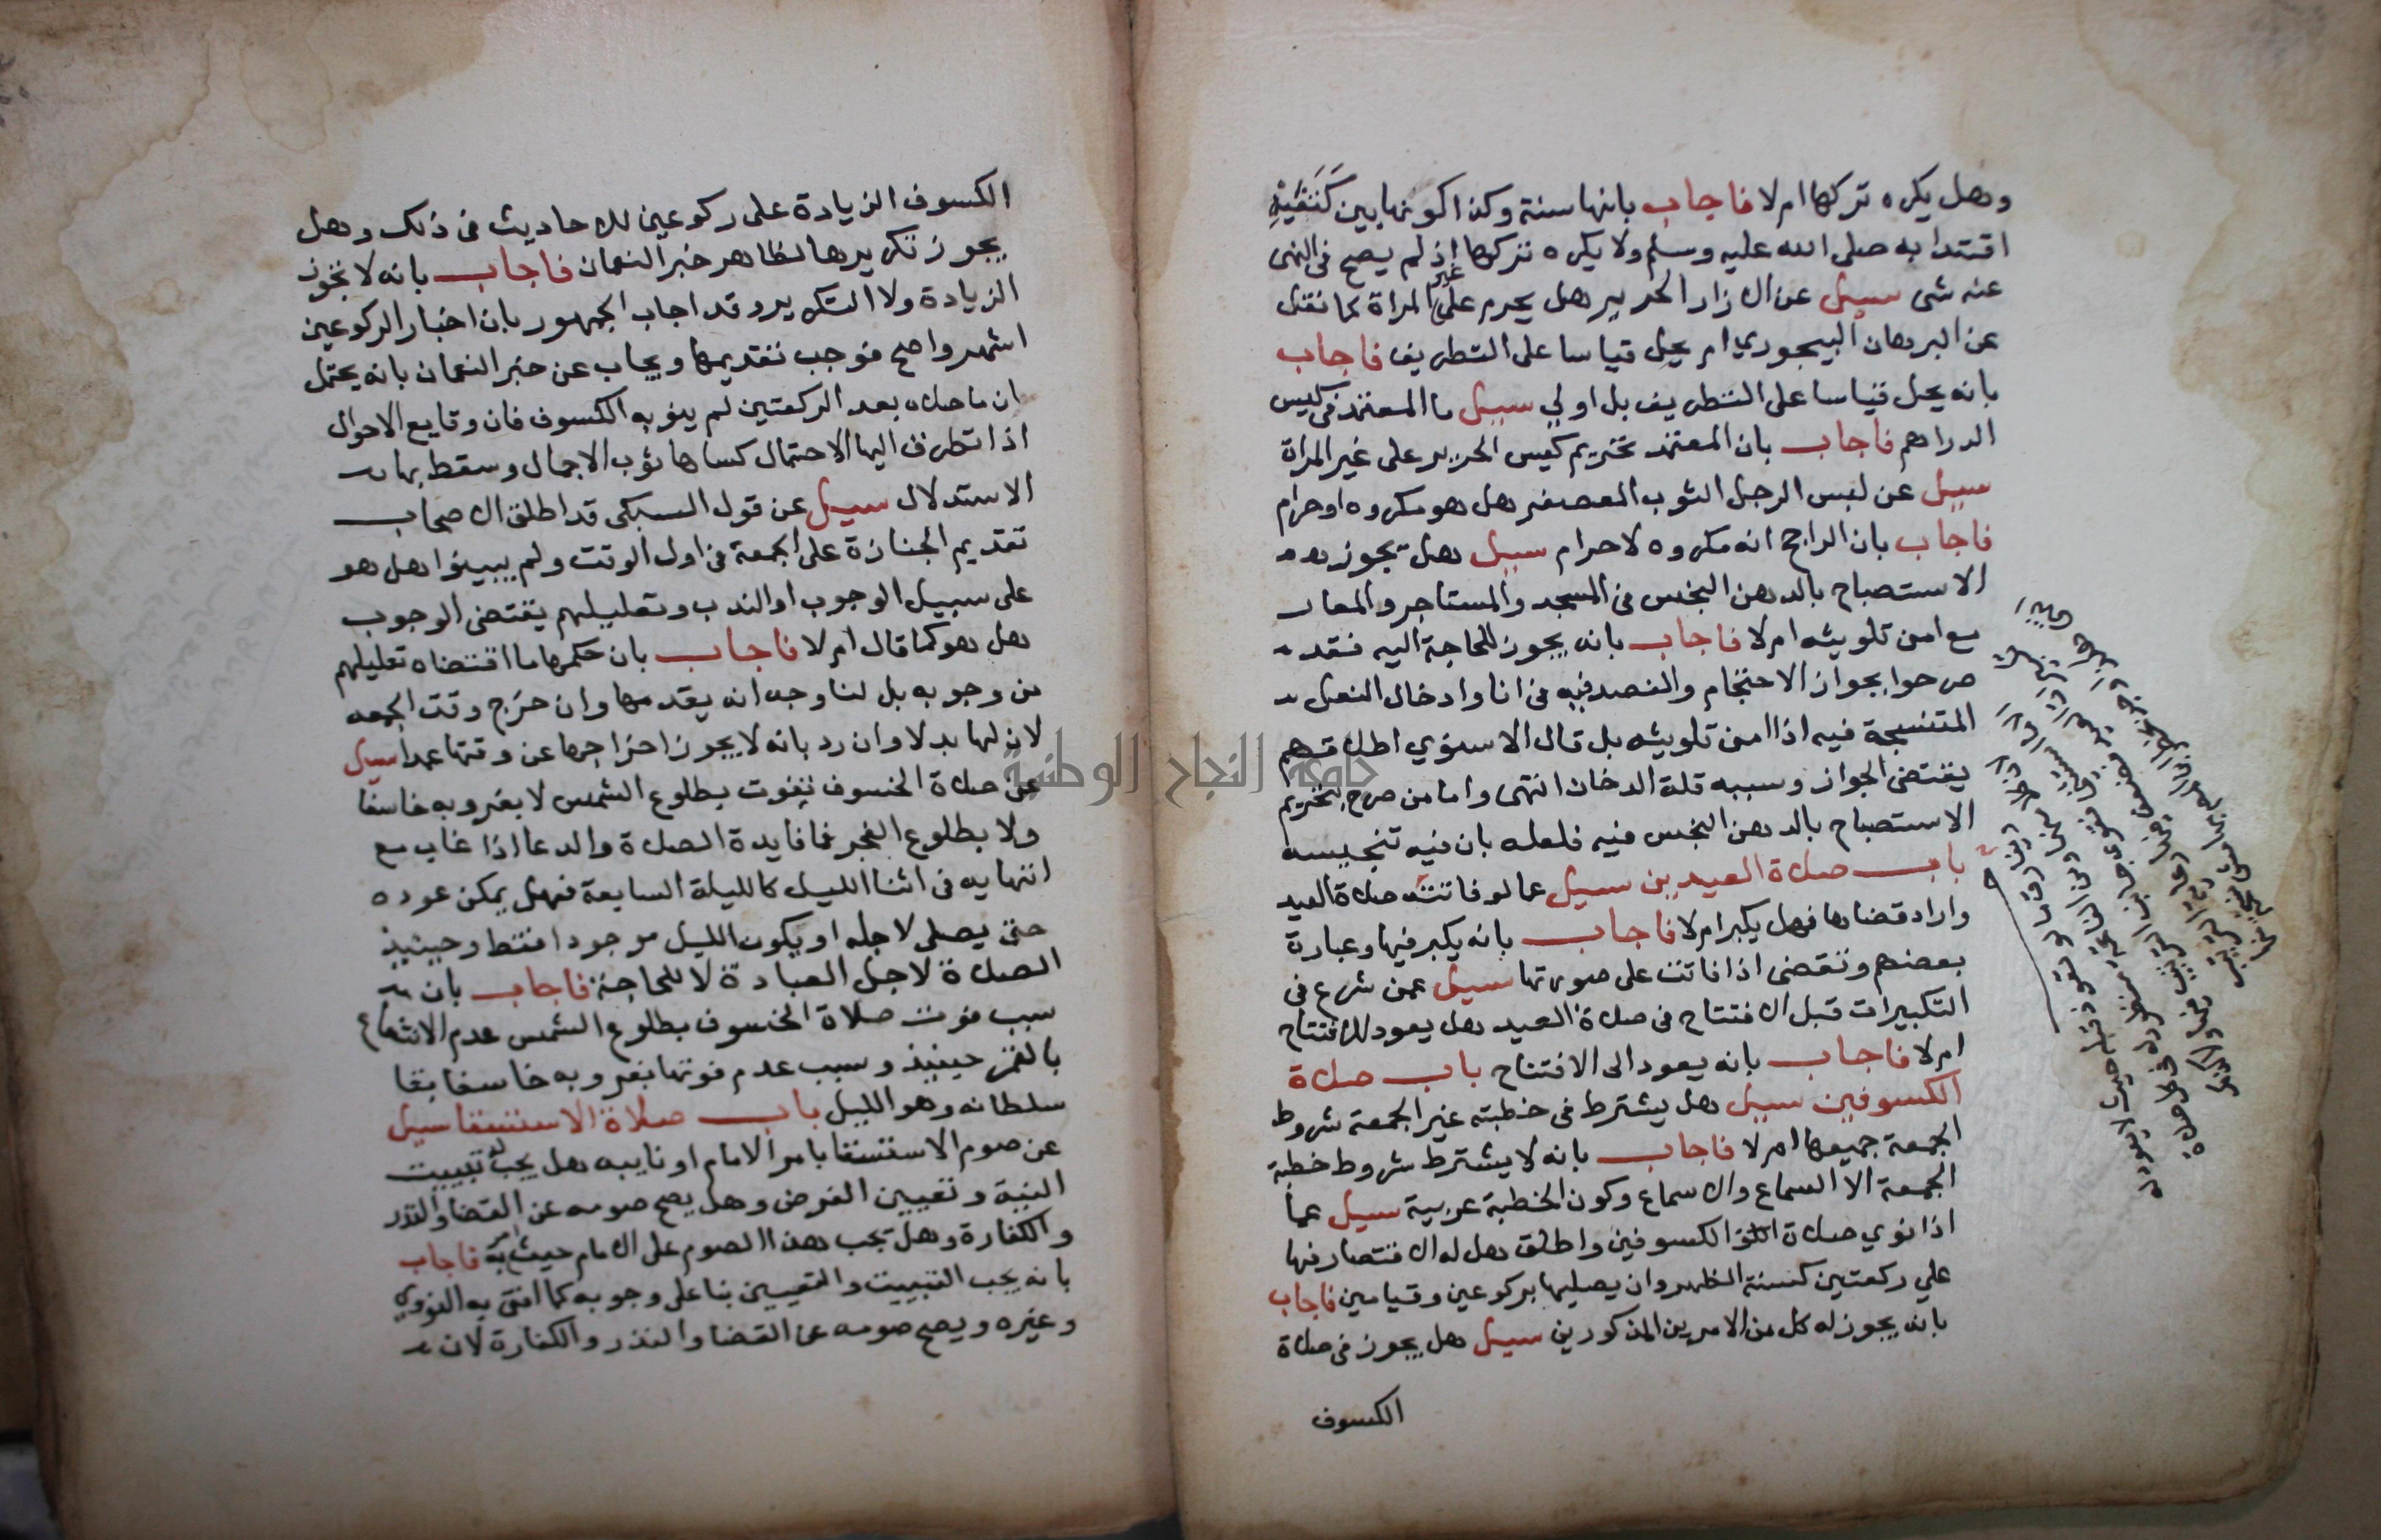 وهل يكره تركها ام لا فاجاب بانها سنة وكذا كونها بين كتفيه
اقتدا به صلى الله عليه وسلم ولا يكره تركها اذ لم يصح في النهى
عنه شى سيل عن الازار الحرير هل يحرم على غير المراة كما نقل
عن البرهان البيجوري ام يحل قياسا على التطريف فاجاب
بانه يحل قياسا على التطريف بل اولي سيل ما المعتمد في كيس
الدراهم فاجاب بان المعتمد تحريم كيس الحرير على غير المراة
سيل عن لبس الرجل الثوب المعصفر هل هو مكروه او حرام
فاجاب بان الراجح انه مكروه لا حرام سيل هل يجوز
الاستصباح بالدهن النجس في المسجد والمستاجر والمعار
مع امن تلويثه ام لا فاجاب بانه يجوز للحاجة اليه فقد
صرحوا بجواز الاحتجام والفصد فيه في انا وادخال النعل
المتنجسة فيه اذا امن تلويثه بل قال الاسنوي اطلاقهم
يقتضى الجواز وسببه قلة الدخان انتهى واما من صرح بتحريم
الاستصباح بالدهن النجس فيه فلعله بان فيه تنجيسه
باب صلاة العيدين سيل عما لو فاتته صلاة العيد
واراد قضاها فهل يكبر ام لا فاجاب بانه يكبر فيها وعبارة
بعضهم وتقضى اذا فاتت على صورتها سيل عمن شرع في
التكبيرات قبل الافتتاح في صلاة العيد هل يعود للافتتاح
ام لا فاجاب بانه يعود الى الافتتاح باب صلاة
الكسوفين سيل هل يشترط في خطبته غير الجمعة شروط
الجمعة جميعها ام لا فاجاب بانه لا يشترط شروط خطبة
الجمعة الا السماع والاسماع وكون الخطبة عربية سيل عما
اذا نوي صلاة الكسوفين واطلق هل له الاقتصار فيها
علي ركعتين كسنة الظهر وان يصليها بركوعين وقيامين فاجاب
بانه يجوز له كل من الامرين المذكورين سيل هل يجوز في صلاة
الكسوف
الكسوف الزيادة على ركوعين للاحاديث في ذلك وهل
يجوز تكريرها لظاهر خبر النعمان فاجاب بانه لا تجوز
الزيادة ولا التكرير وقد اجاب الجمهور بان اخبار الركوعين
اشهر واصح فوجب تقديمها ويجاب عن خبر النعمان بانه يحتمل
ان ما صلاه بعد الركعتين لم ينو به الكسوف فان وقايع الاحوال
اذا تطرق اليها الاحتمال كساها ثوب الاجمال وسقط بها
الاستدلال سيل عن قول السبكى قد اطلق الاصحاب
تقديم الجنازة على الجمعة في اول الوقت ولم يبينوا هل هو
على سبيل الوجوب او الندب وتعليلهم يقتضى الوجوب
هل هو كما قال ام لا فاجاب بان حكمها ما اقتضاه تعليلهم
من وجوبه بل لنا وجه انه يقدمها وان خرج وقت الجمعه
لان لها بدلا وان رد بانه لا يجوز اخراجها عن وقتها عمدا سيل
عن صلاة الخسوف تفوت بطلوع الشمس لا بغروبه خاسفا
ولا بطلوع الفجر فما فايدة الصلاة والدعا اذا غاب مع
انتهايه في اثنا الليل كالليلة السابعة فهل يمكن عوده
حتى يصلى لاجله او يكون الليل موجودا فقط وحينيذ
الصلاة لاجل العبادة لا للحاجة فاجاب بان
سبب فوت صلاة الخسوف بطلوع الشمس عدم الانتفاع
بالقمر حينيذ وسبب عدم فوتها بغروبه خاسفا بقا
سلطانه وهو الليل باب صلاة الاستسقا سيل
عن صوم الاستسقا بامر الامام او نايبه هل يجب له تبييت
النية وتعيين الفرض وهل يصح صومه عن القضا والنذر
والكفارة وهل يجب هذا الصوم على الامام حيث امر به فاجاب
بانه يجب التبييت والتعيين بنا على وجوبه كما افتى به النووي
وغيره ويصح صومه عن القضا والنذر والكفارة لان
جامعة النجاح الوطنية